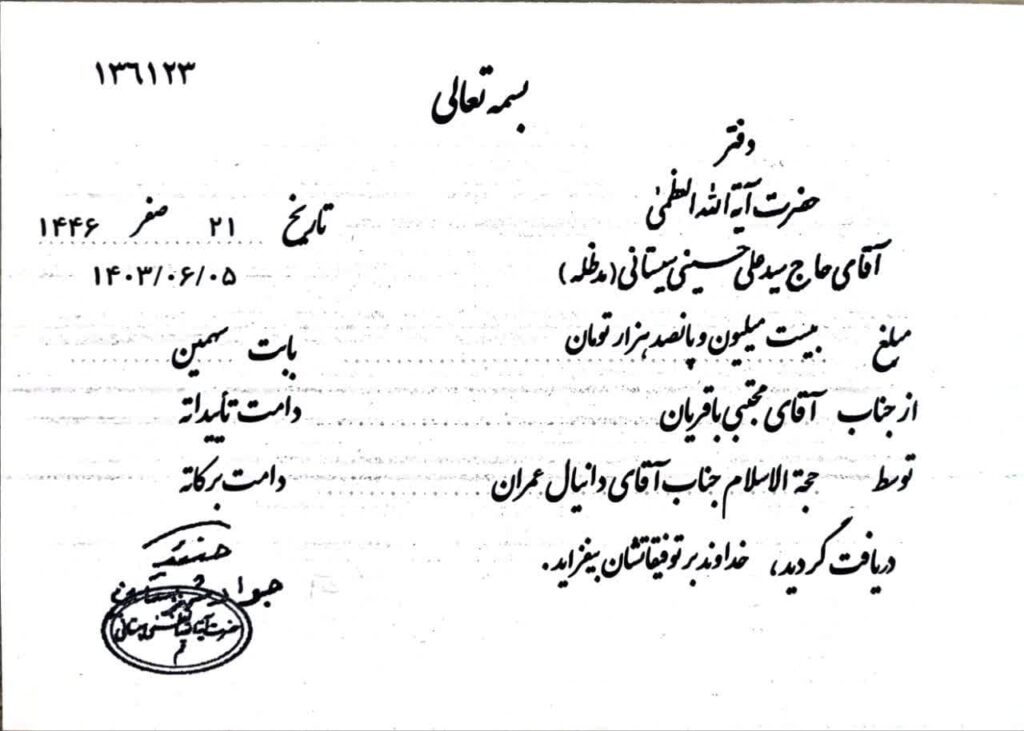 ۱۳۶۱۲۳
بسمه تعالی
دفتر
حضرت آیة الله العظمیٰ
آقای حاج سید علی حسینی سیستانی (مدظله)
تاریخ ۲۱ صفر ۱۴۴۶
۱۴۰۳/۰۶/۰۵
مبلغ بیست میلیون و پانصد هزار تومان بابت سهمین
از جناب آقای مجتبی باقریان دامت تأییداته
توسط حجة الاسلام جناب آقای دانیال عمران دامت برکاته
دریافت گردید، خداوند بر توفیقاتشان بیفزاید.
جواد
قم